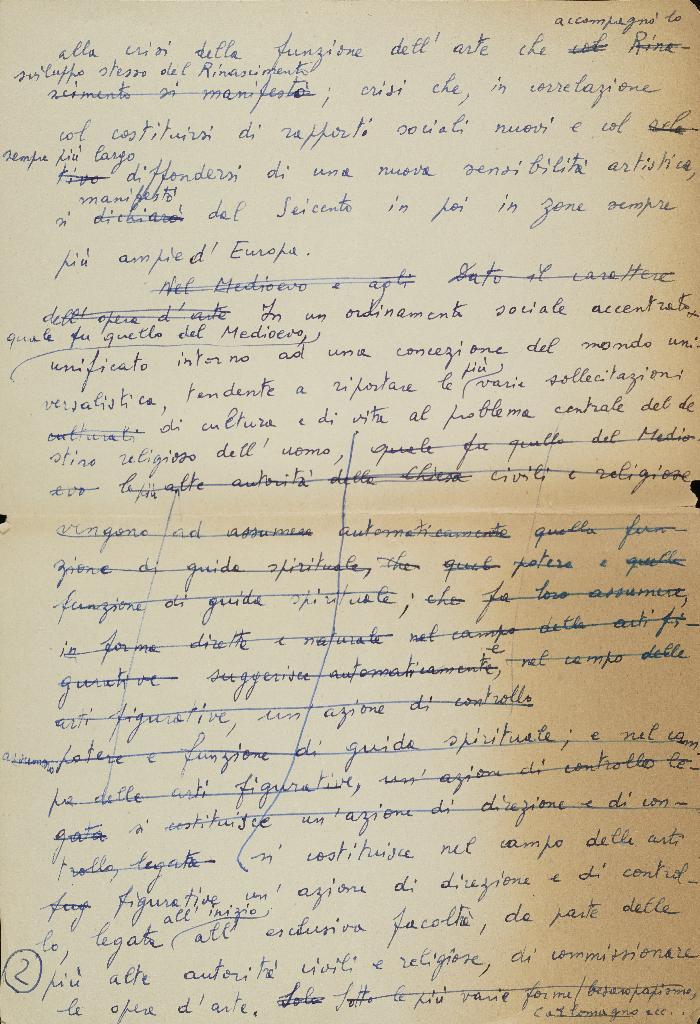 accompagnò lo
alla crisi della funzione dell'arte che col Rina-
sviluppo stesso del Rinascimento
scimento si manifestò; crisi che, in correlazione
col costituirsi di rapporti sociali nuovi e col rela-
sempre più largo
tivo diffondersi di una nuova sensibilità artistica,
manifestò
si dichiarò dal Seicento in poi in zone sempre
più ampie d'Europa.
Nel Medioevo e agli Dato il carattere
dell'opera d'arte In un ordinamento sociale accentrato,
quale fu quello del Medioevo,
unificato intorno ad una concezione del mondo uni
più
versalistica, tendente a riportare le varie sollecitazioni
culturali di cultura e di vita al problema centrale del de
stino religioso dell'uomo, quale fu quello del Medio-
evo le più alte autorità della Chiesa civili e religiose
vengono ad assumere automaticamente quella fun-
zione di guida spirituale, che quel potere e quella
funzione di guida spirituale; che fa loro assumere,
in forma diretta e naturale nel campo delle arti fi-
gurative suggerisce automaticamente, e nel campo delle
arti figurative, un'azione di controllo
assumono potere e funzione di guida spirituale; e nel cam
po delle arti figurative, un'azione di controllo le-
gata si costituisce un'azione di direzione e di con-
trollo, legata si costituisce nel campo delle arti
figurative un'azione di direzione e di control-
all'inizio
lo, legata all'esclusiva facoltà, da parte delle
più alte autorità civili e religiose, di commissionare
2
le opere d'arte. Sotto le più varie forme (cesaropapismo,
Carlomagno ecc..